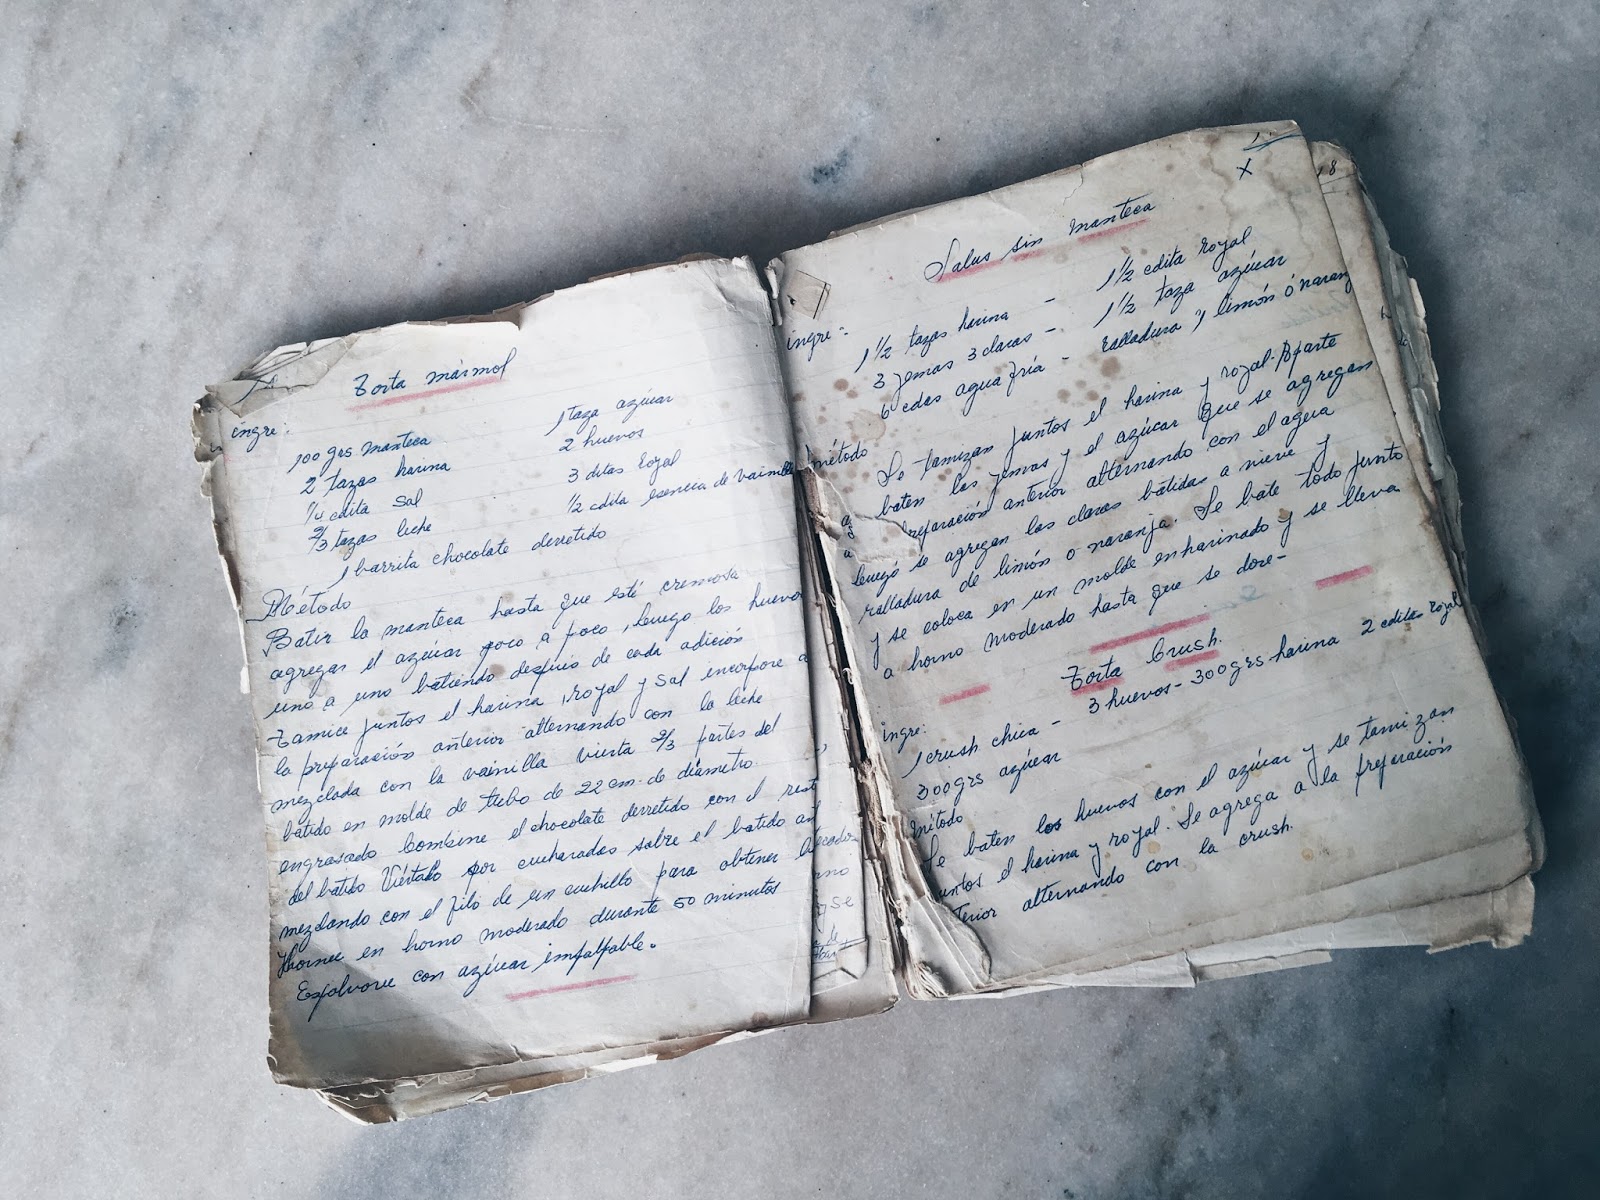 Torta mármol
ingre:
100 grs manteca 1 taza azúcar
2 tazas harina 2 huevos
1/4 cdita sal 3 ditas Royal
2/3 tazas leche 1/2 cdita esencia de vainilla
1 barrita chocolate derretido
Método
Batir la manteca hasta que esté cremosa
agregar el azúcar poco a poco, luego los huevos
uno a uno batiendo después de cada adición
Tamice juntos el harina, royal y sal incorpore a
la preparación anterior alternando con la leche
mezclada con la vainilla vierta 2/3 partes del
batido en molde de tubo de 22 cm. de diámetro.
engrasado Combine el chocolate derretido con el rest
del batido Viértalo por cucharadas sobre el batido
mezclando con el filo de un cuchillo para obtener
Hornee en horno moderado durante 50 minutos
Espolvoree con azúcar impalpable.
X
18
Salus sin manteca
ingre:
1 1/2 tazas harina - 1 1/2 cdita royal
3 yemas 3 claras - 1 1/2 taza azúcar
6 cdas agua fría - ralladura y limón ó naran
método
Se tamizan juntos el harina y royal. Aparte
baten las yemas y el azúcar que se agregan
preparación anterior alternando con el agua
luego se agregan las claras batidas a nieve y
ralladura de limón o naranja. Se bate todo junto
y se coloca en un molde enharinado y se lleva
a horno moderado hasta que se dore-
Torta Crush.
ingre:
1 crush chica - 3 huevos - 300 grs harina 2 cditas royal
300 grs azúcar
método
Se baten los huevos con el azúcar y se tamizan
juntos el harina y royal. Se agrega a la preparación
terior alternando con la crush.